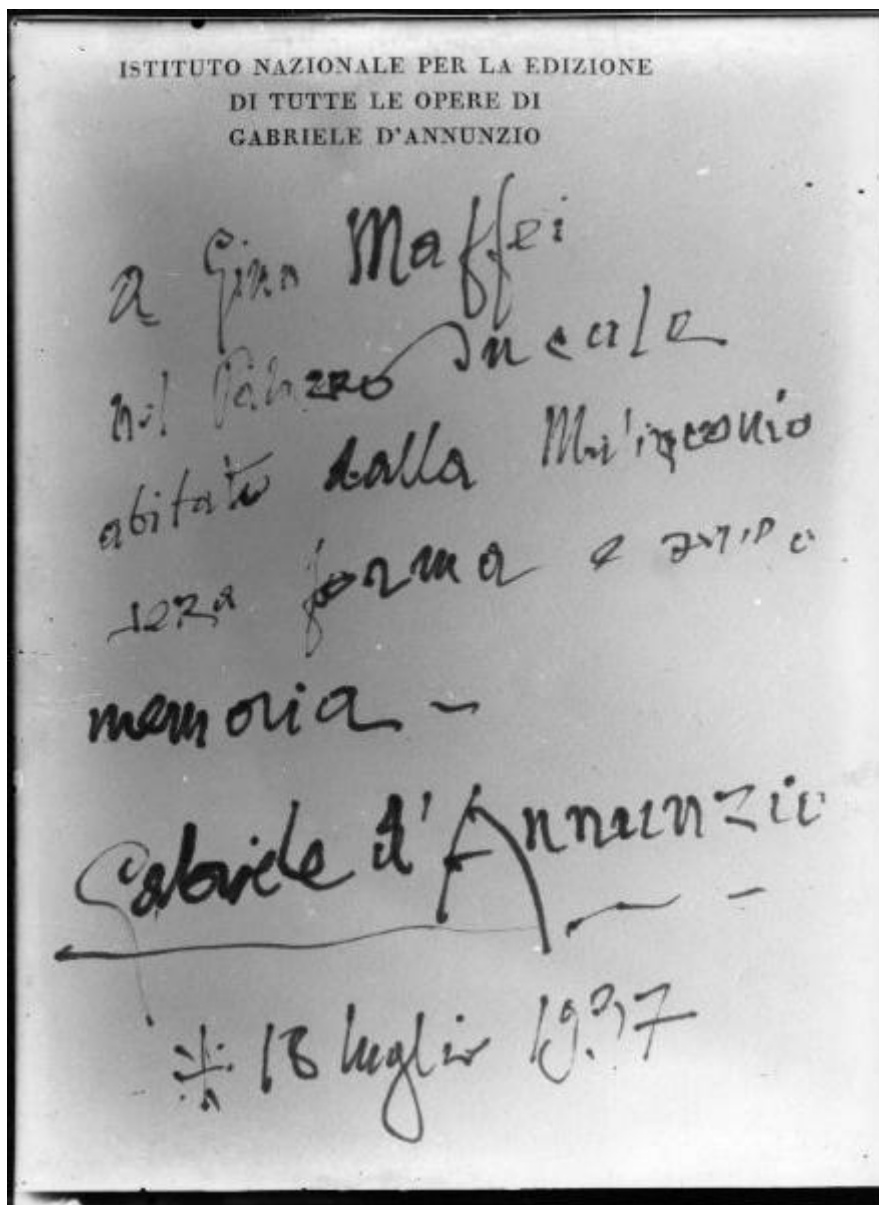 ISTITUTO NAZIONALE PER LA EDIZIONE
DI TUTTE LE OPERE DI
GABRIELE D'ANNUNZIO
a Gino Maffei
nel Palazzo ducale
abitato dalla Malinconia
senza forma e senza
memoria –
Gabriele d'Annunzio
* 18 luglio 1937